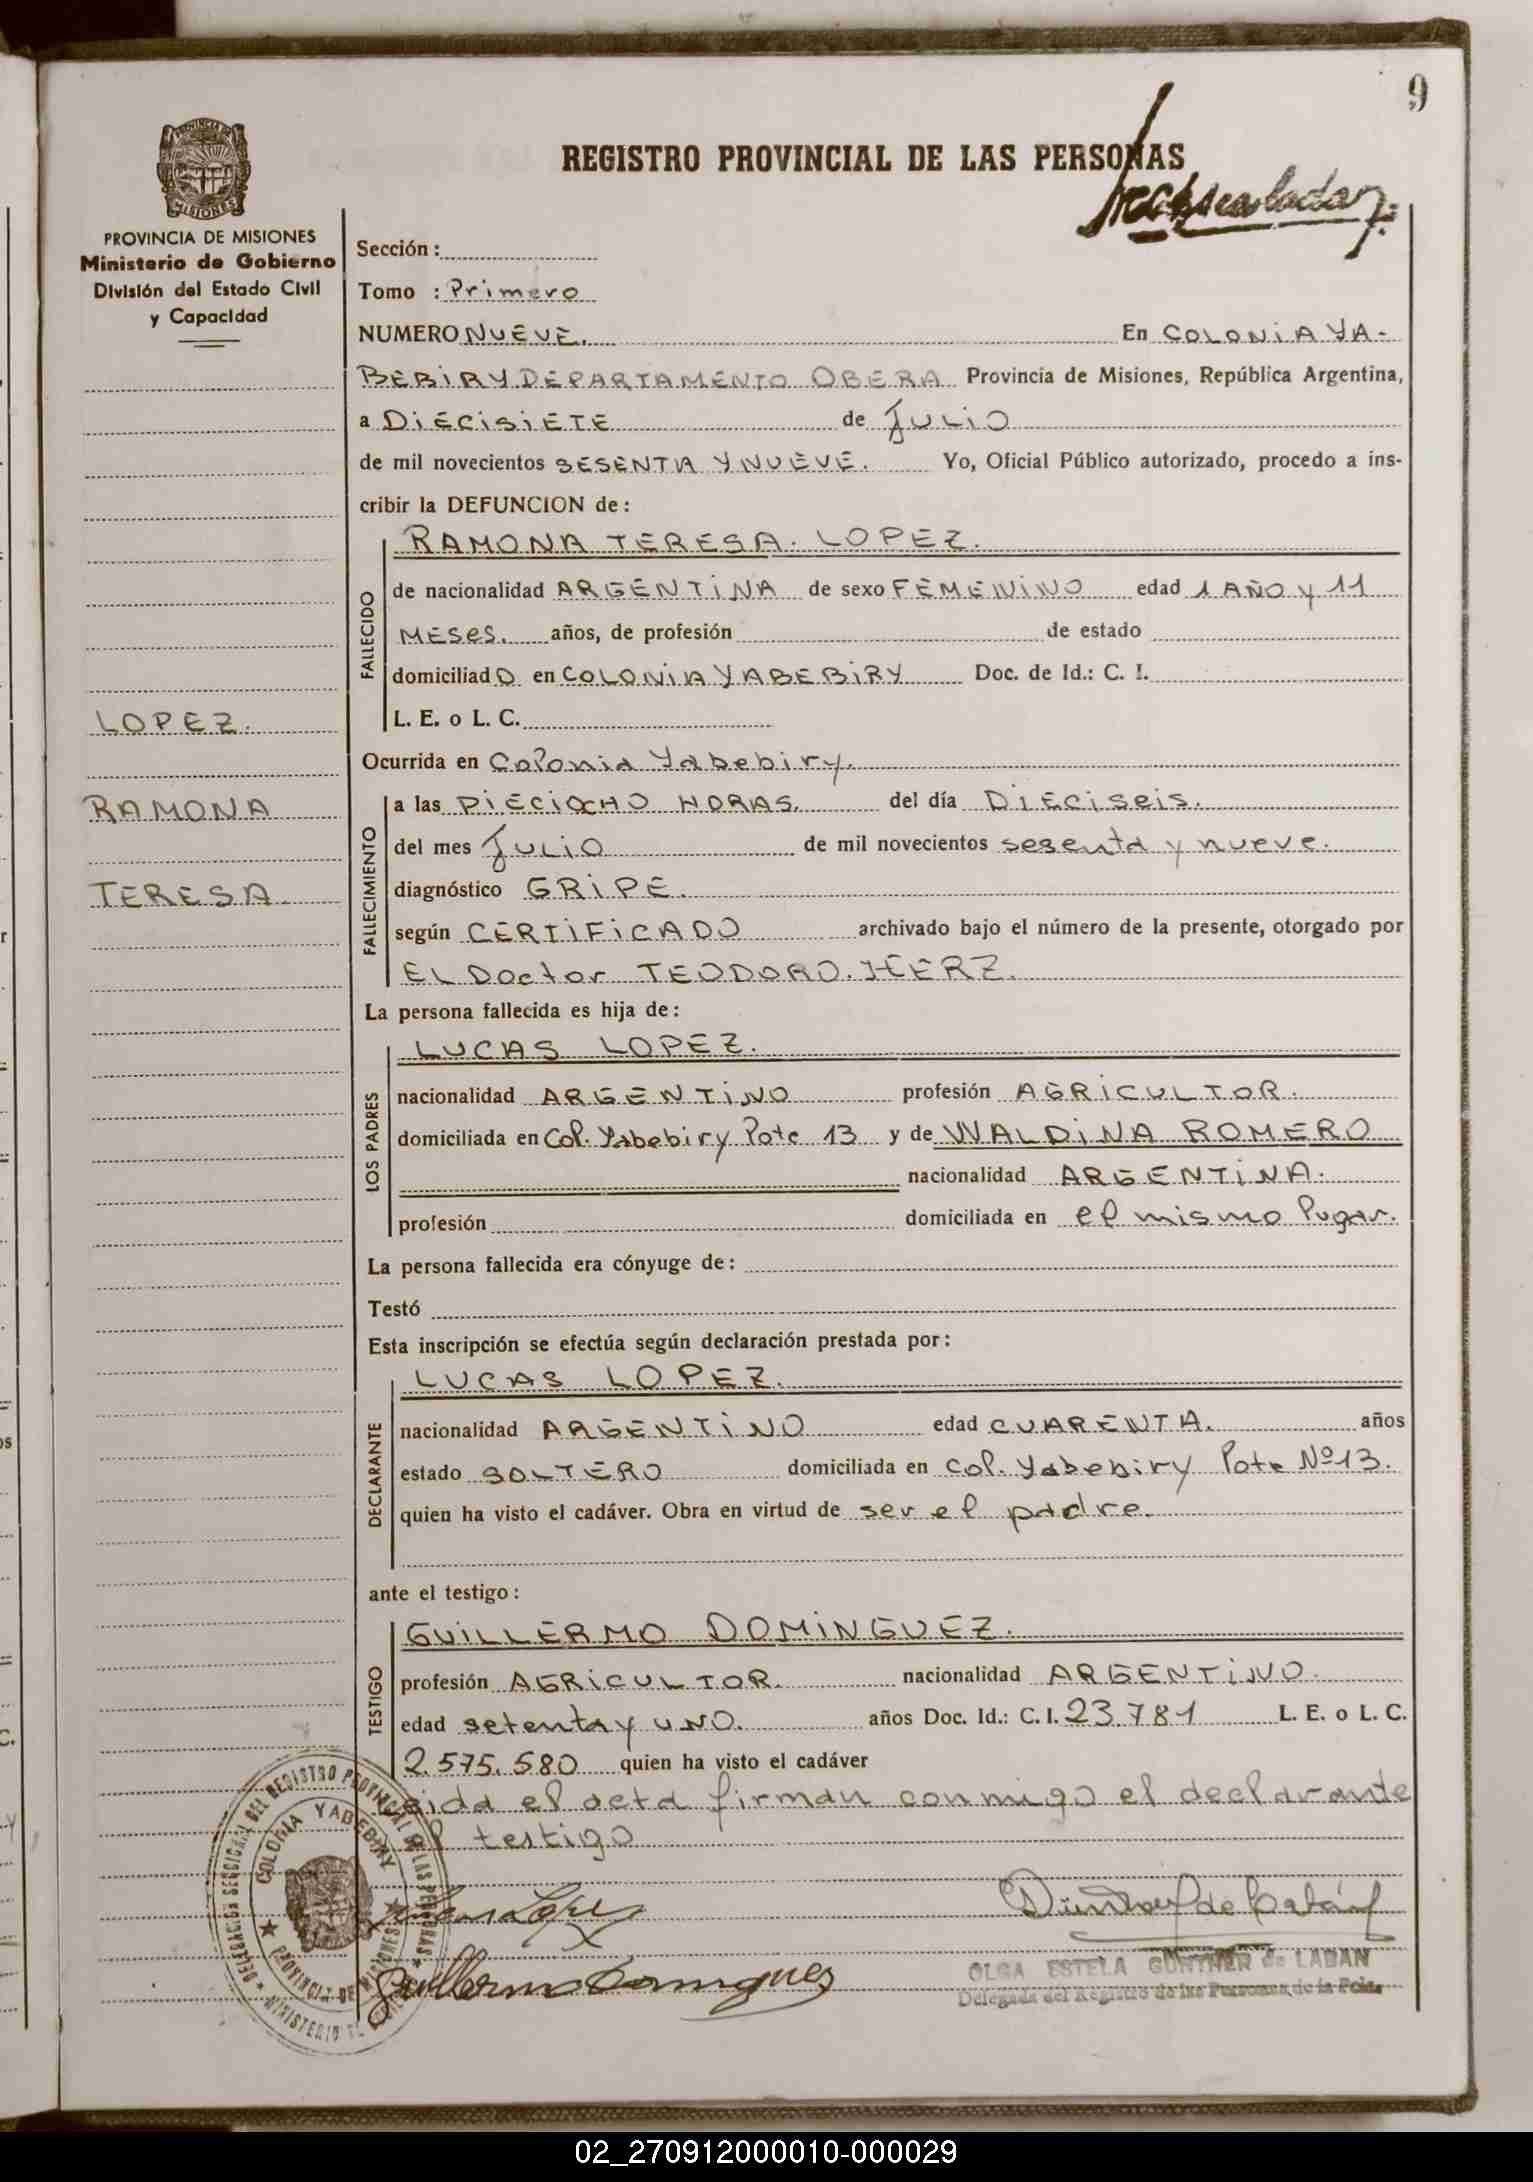 9
REGISTRO PROVINCIAL DE LAS PERSONAS
PROVINCIA DE MISIONES
Ministerio de Gobierno
División del Estado Civil
y Capacidad
Sección:
Tomo : Primero
NUMERO NUEVE. En COLONIA YA-
BEBIRY DEPARTAMENTO OBERA Provincia de Misiones, República Argentina,
a DIECISIETE de JULIO
de mil novecientos SESENTA Y NUEVE. Yo, Oficial Público autorizado, procedo a ins-
cribir la DEFUNCION de:
RAMONA TERESA. LOPEZ.
FALLECIDO
de nacionalidad ARGENTINA de sexo FEMENINO edad 1 AÑO Y 11
MESES. años, de profesión de estado
domiciliadO en COLONIA YABEBIRY Doc. de Id.: C. I.
L. E. o L. C.
LOPEZ.
RAMONA
TERESA.
Ocurrida en Colonia Yabebiry.
FALLECIMIENTO
a las DIECIOCHO HORAS. del día DIECISEIS.
del mes JULIO de mil novecientos sesenta y nueve.
diagnóstico GRIPE.
según CERTIFICADO archivado bajo el número de la presente, otorgado por
EL Doctor TEODORO. HERZ.
La persona fallecida es hija de:
LUCAS LOPEZ.
LOS PADRES
nacionalidad ARGENTINO profesión AGRICULTOR.
domiciliada en Col. Yabebiry lote 13 y de WALDINA ROMERO
nacionalidad ARGENTINA.
profesión domiciliada en el mismo lugar.
La persona fallecida era cónyuge de:
Testó
Esta inscripción se efectúa según declaración prestada por:
LUCAS LOPEZ.
DECLARANTE
nacionalidad ARGENTINO edad CUARENTA. años
estado SOLTERO domiciliada en Col. Yabebiry lote Nº 13.
quien ha visto el cadáver. Obra en virtud de ser el padre.
ante el testigo:
GUILLERMO DOMINGUEZ.
TESTIGO
profesión AGRICULTOR. nacionalidad ARGENTINO.
edad setenta y UNO. años Doc. Id.: C. I. 23.781 L. E. o L. C.
2.575.580 quien ha visto el cadáver
el acta firman conmigo el declarante
testigo
DELEGACION SECCION DEL REGISTRO PROVINCIAL DE LAS PERSONAS
COLONIA YABEBIRY
PROVINCIA DE MISIONES
MINISTERIO
Lucas Lopez
Guillermo Dominguez
OLGA ESTELA GÜNTHER de LABAN
Delegada del Registro de las Personas de la Pcia.
02_270912000010-000029